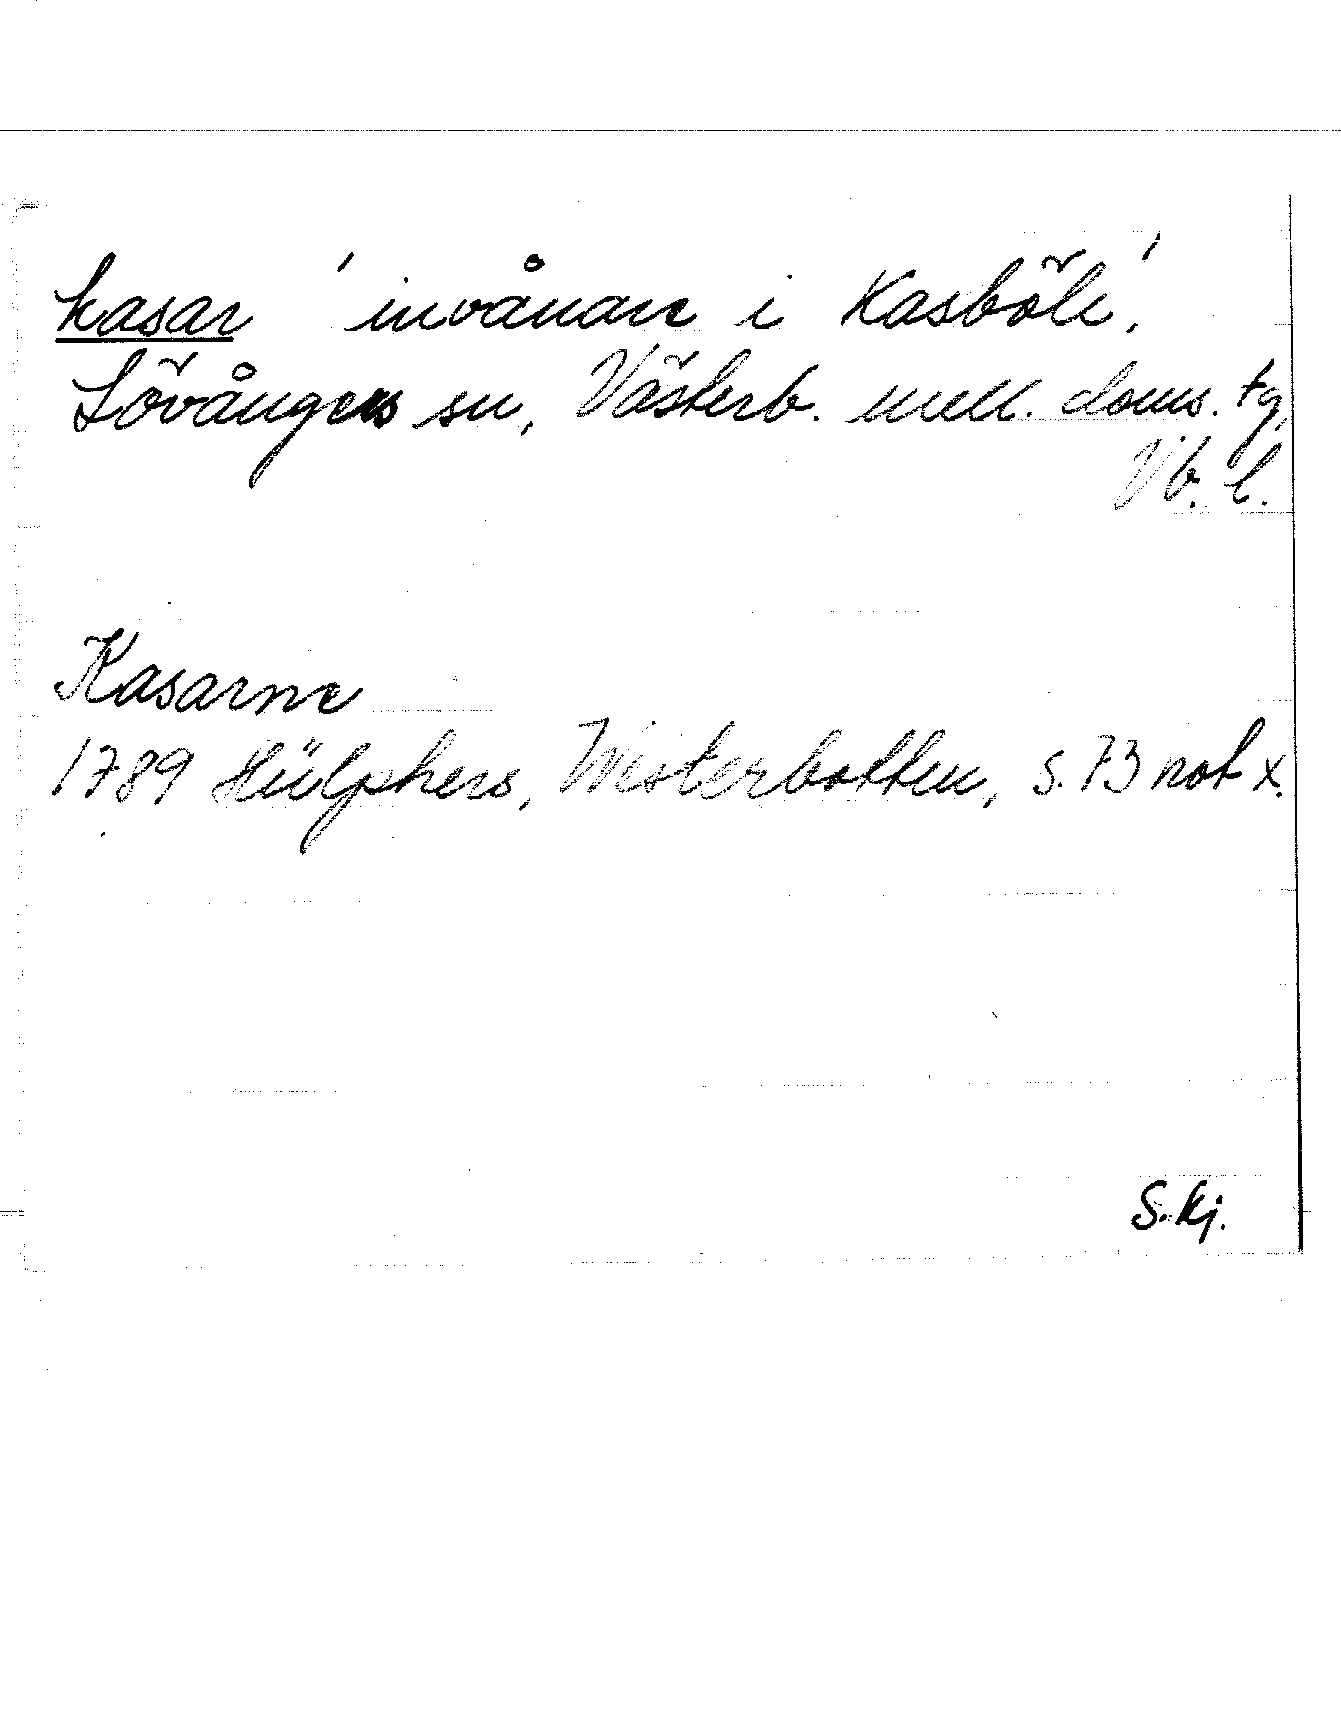 kasar 'invånare i Kasböle',
Lövångers sn, Västerb. mell. doms. tg,
Vb. l.
Kasarne
1789 Hülphers, Westerbotten, s. 73 not x.
S. Kj.